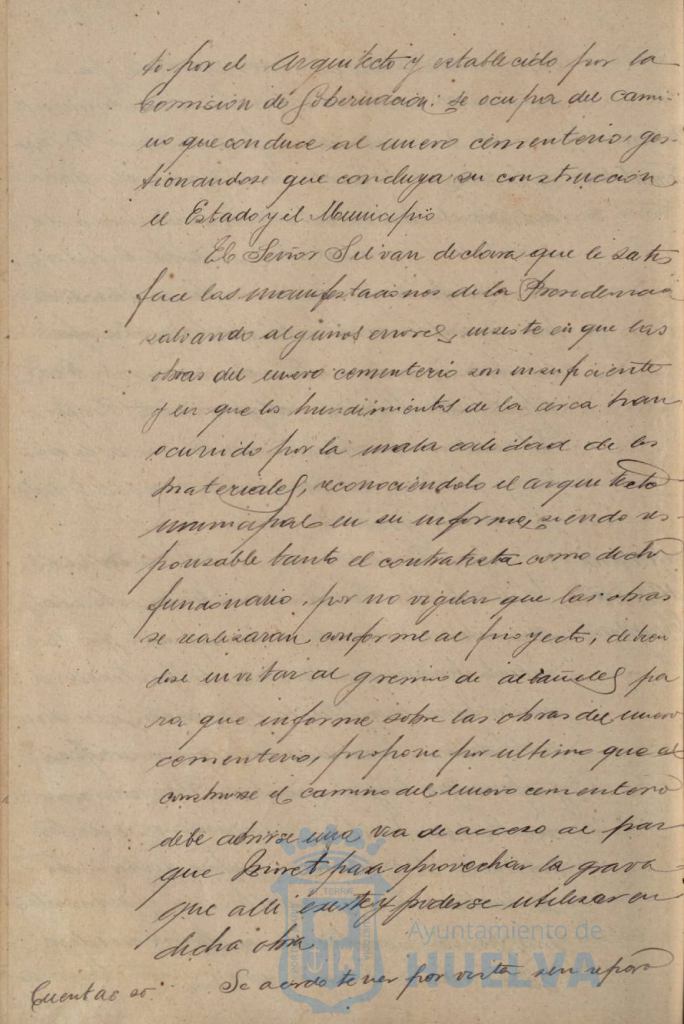 to por el Arquitecto y establecido por la
Comision de Gobernación: se ocupa del cami-
no que conduce al nuevo cementerio, ges-
tionandose que concluya su construccion,
el Estado y el Municipio
El Señor Silvan declara que le satis
face las manifestaciones de la Presidencia
salvando algunos errores, insiste en que las
obras del nuevo cementerio son insuficiente
y en que los hundimientos de la cerca han
ocurrido por la mala calidad de los
materiales, reconociéndolo el arquitecto
municipal en su informe, siendo res-
ponsable tanto el contratista como dicho
funcionario, por no vigilar que las obras
se realizaran conforme al proyecto, debien
dose invitar al gremio de albañiles pa
ra que informe sobre las obras del nuevo
cementerio, propone por ultimo que al
construirse el camino del nuevo cementerio
debe abrirse una via de acceso al par
que Moret para aprovechar la grava
que alli existe y poderse utilizar en
dicha obra
Cuentas
Se acordó tener por vista sin reparo
Ayuntamiento de
HUELVA